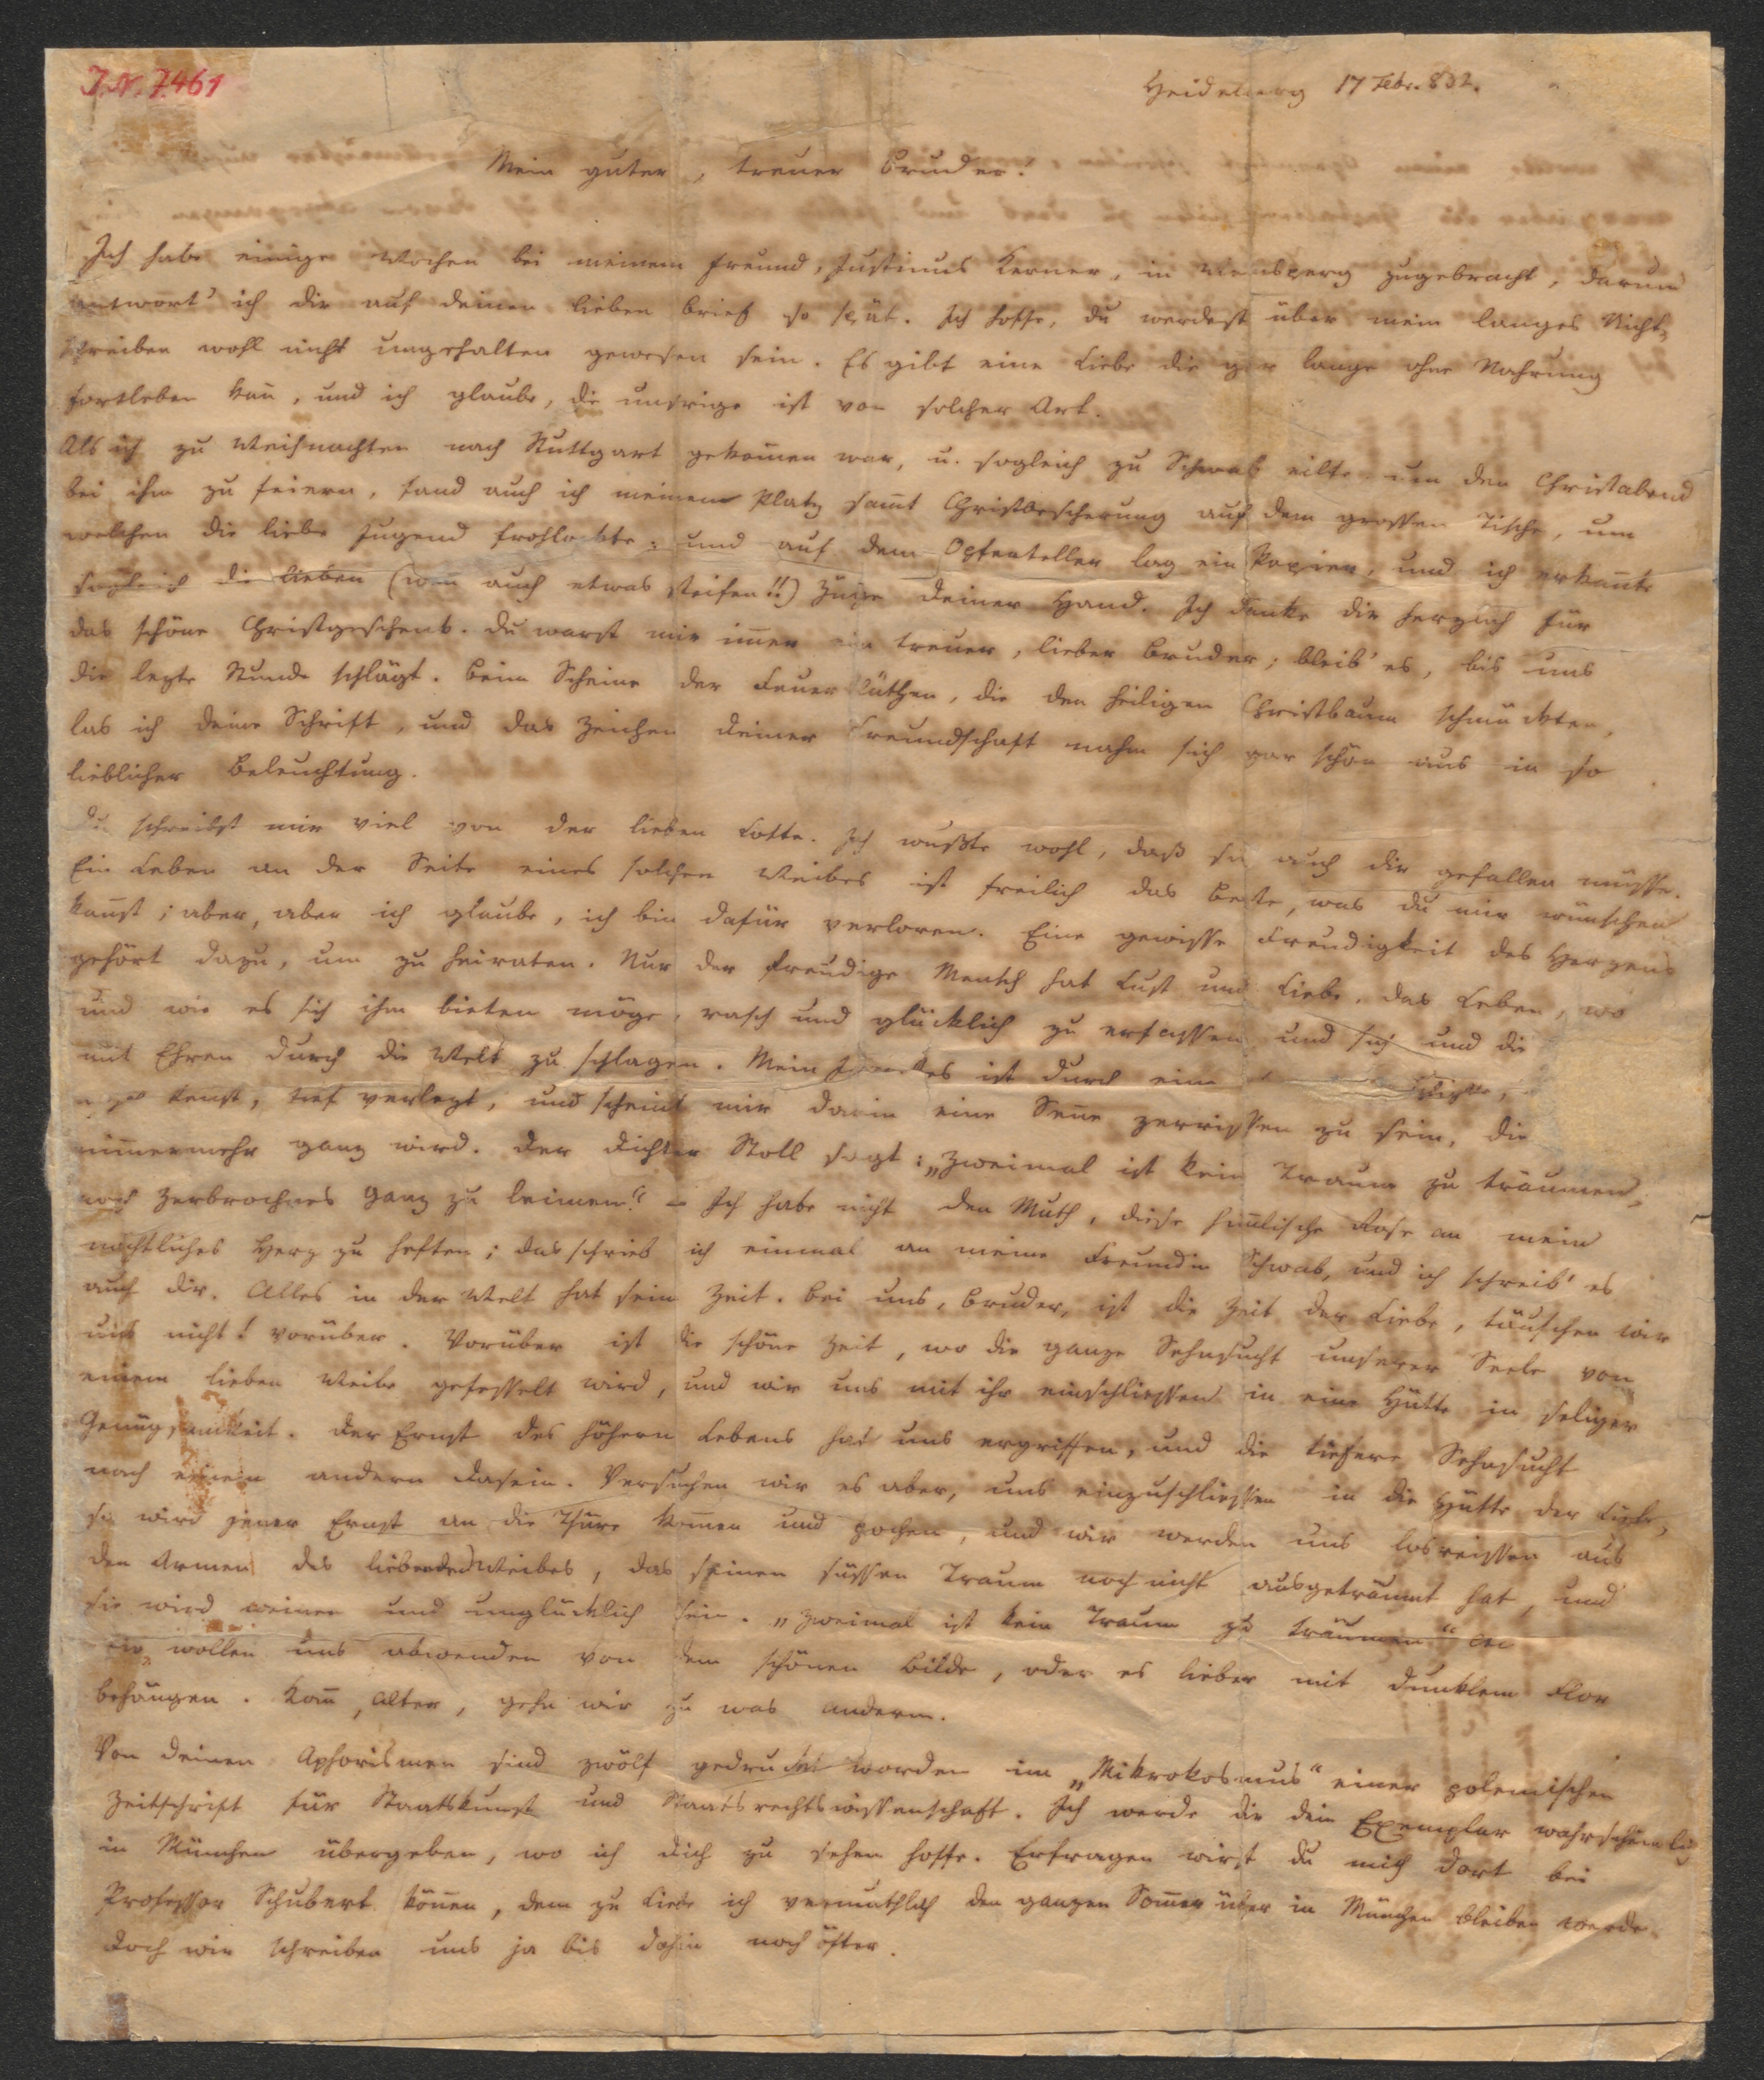 J.N. 7461
Heidelberg 17 Febr. 832.
Mein guter, treuer Bruder!
Ich habe einige Wochen bei meinem Freund, Justinus Kerner, in Weinsperg zugebracht, darum
antwort' ich dir auf deinen lieben Brief so spät. Ich hoffe, du werdest über mein langes Nicht-
schreiben wohl nicht ungehalten gewesen sein. Es gibt eine Liebe die gar lange ohne Nahrung
fortleben kañ, und ich glaube, die unsrige ist von solcher Art.
Als ich zu Weihnachten nach Stuttgart gekom̄en war, u. sogleich zu Schwab eilte um den Christabend
bei ihm zu feiern, fand auch ich meinen Platz sam̄t Christbescherung auf dem grossen Tische, um
welchen die liebe Jugend frohlockte; und auf dem Opferteller lag ein Papier, und ich erkañte
sogleich die lieben (weñ auch etwas steifen!!) Züge deiner Hand. Ich danke dir herzlich für
das schöne Christgeschenk. Du warst mir im̄er ein treuer, lieber Bruder; bleib' es, bis uns
die lezte Stunde schlägt. Beim Scheine der Feuerblüthen, die den heiligen Christbaum schmückten,
las ich deine Schrift, und das Zeichen deiner Freundschaft nahm sich gar schön aus in so
lieblicher Beleuchtung.
Du schreibst mir viel von der lieben Lotte. Ich wußte wohl, daß sie auch dir gefallen müsse.
Ein Leben an der Seite eines solchen Weibes ist freilich das Beste, was du mir wünschen
kañst; aber, aber ich glaube, ich bin dafür verloren. Eine gewisse Freudigkeit des Herzens
gehört dazu, um zu heiraten. Nur der freudige Mensch hat Lust und Liebe, das Leben, wo
und wie es sich ihm bieten möge, rasch und glücklich zu erfassen und sich und die
mit Ehren durch die Welt zu schlagen. Mein Innerstes ist durch eine
keñst, tief verlezt, und scheint mir darin eine Señe zerrissen zu sein, die
nim̄ermehr ganz wird. Der Dichter Stoll sagt: „Zweimal ist kein Traum zu träumen,
noch Zerbrochnes ganz zu leimen." – Ich habe nicht den Muth, diese him̄lische Rose an mein
nächtliches Herz zu heften; das schrieb ich einmal an meine Freundin Schwab, und ich schreib' es
auch dir. Alles in der Welt hat sein Zeit. Bei uns, Bruder, ist die Zeit der Liebe, täuschen wir
uns nicht! vorüber. Vorüber ist die schöne Zeit, wo die ganze Sehnsucht unserer Seele von
einem lieben Weibe gefesselt wird, und wir uns mit ihr einschliessen in eine Hütte in seliger
Genügsamkeit. Der Ernst des höhern Lebens hat uns ergriffen, und die tiefere Sehnsucht
nach einem andern Dasein. Versuchen wir es aber, uns einzuschliessen in die Hütte der Liebe,
so wird jener Ernst an die Thüre kom̄en und pochen, und wir werden uns losreissen aus
den Armen des liebenden Weibes, das seinen süssen Traum noch nicht ausgeträumt hat, und
sie wird weinen und unglücklich sein. „Zweimal ist kein Traum zu träumen"
wir wollen uns abwenden von dem schönen Bilde, oder es lieber mit dunklem Flor
behängen. Kom̄, Alter, gehn wir zu was anderm.
Von deinen Aphorismen sind zwölf gedruckt worden im „Mikrokosmus" einer polemischen
Zeitschrift für Staatskunst und Staatsrechtswissenschaft. Ich werde dir dein Exemplar wahrscheinlich
in München übergeben, wo ich dich zu sehen hoffe. Erfragen wirst du mich dort bei
Professor Schubert köñen, dem zu Liebe ich vermuthlich den ganzen Som̄er über in München bleiben werde.
Doch wir schreiben uns ja bis dahin noch öfter.